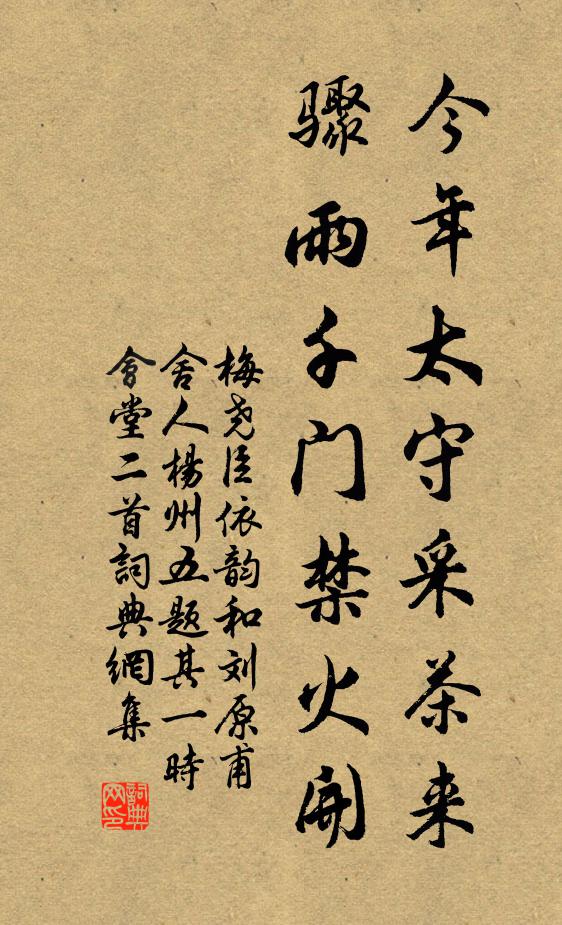 今年太守采茶来
骤雨千门禁火开
梅尧臣依韵和刘原甫
舍人杨州五题其一时
会堂二首詞典網集
詞典
网印